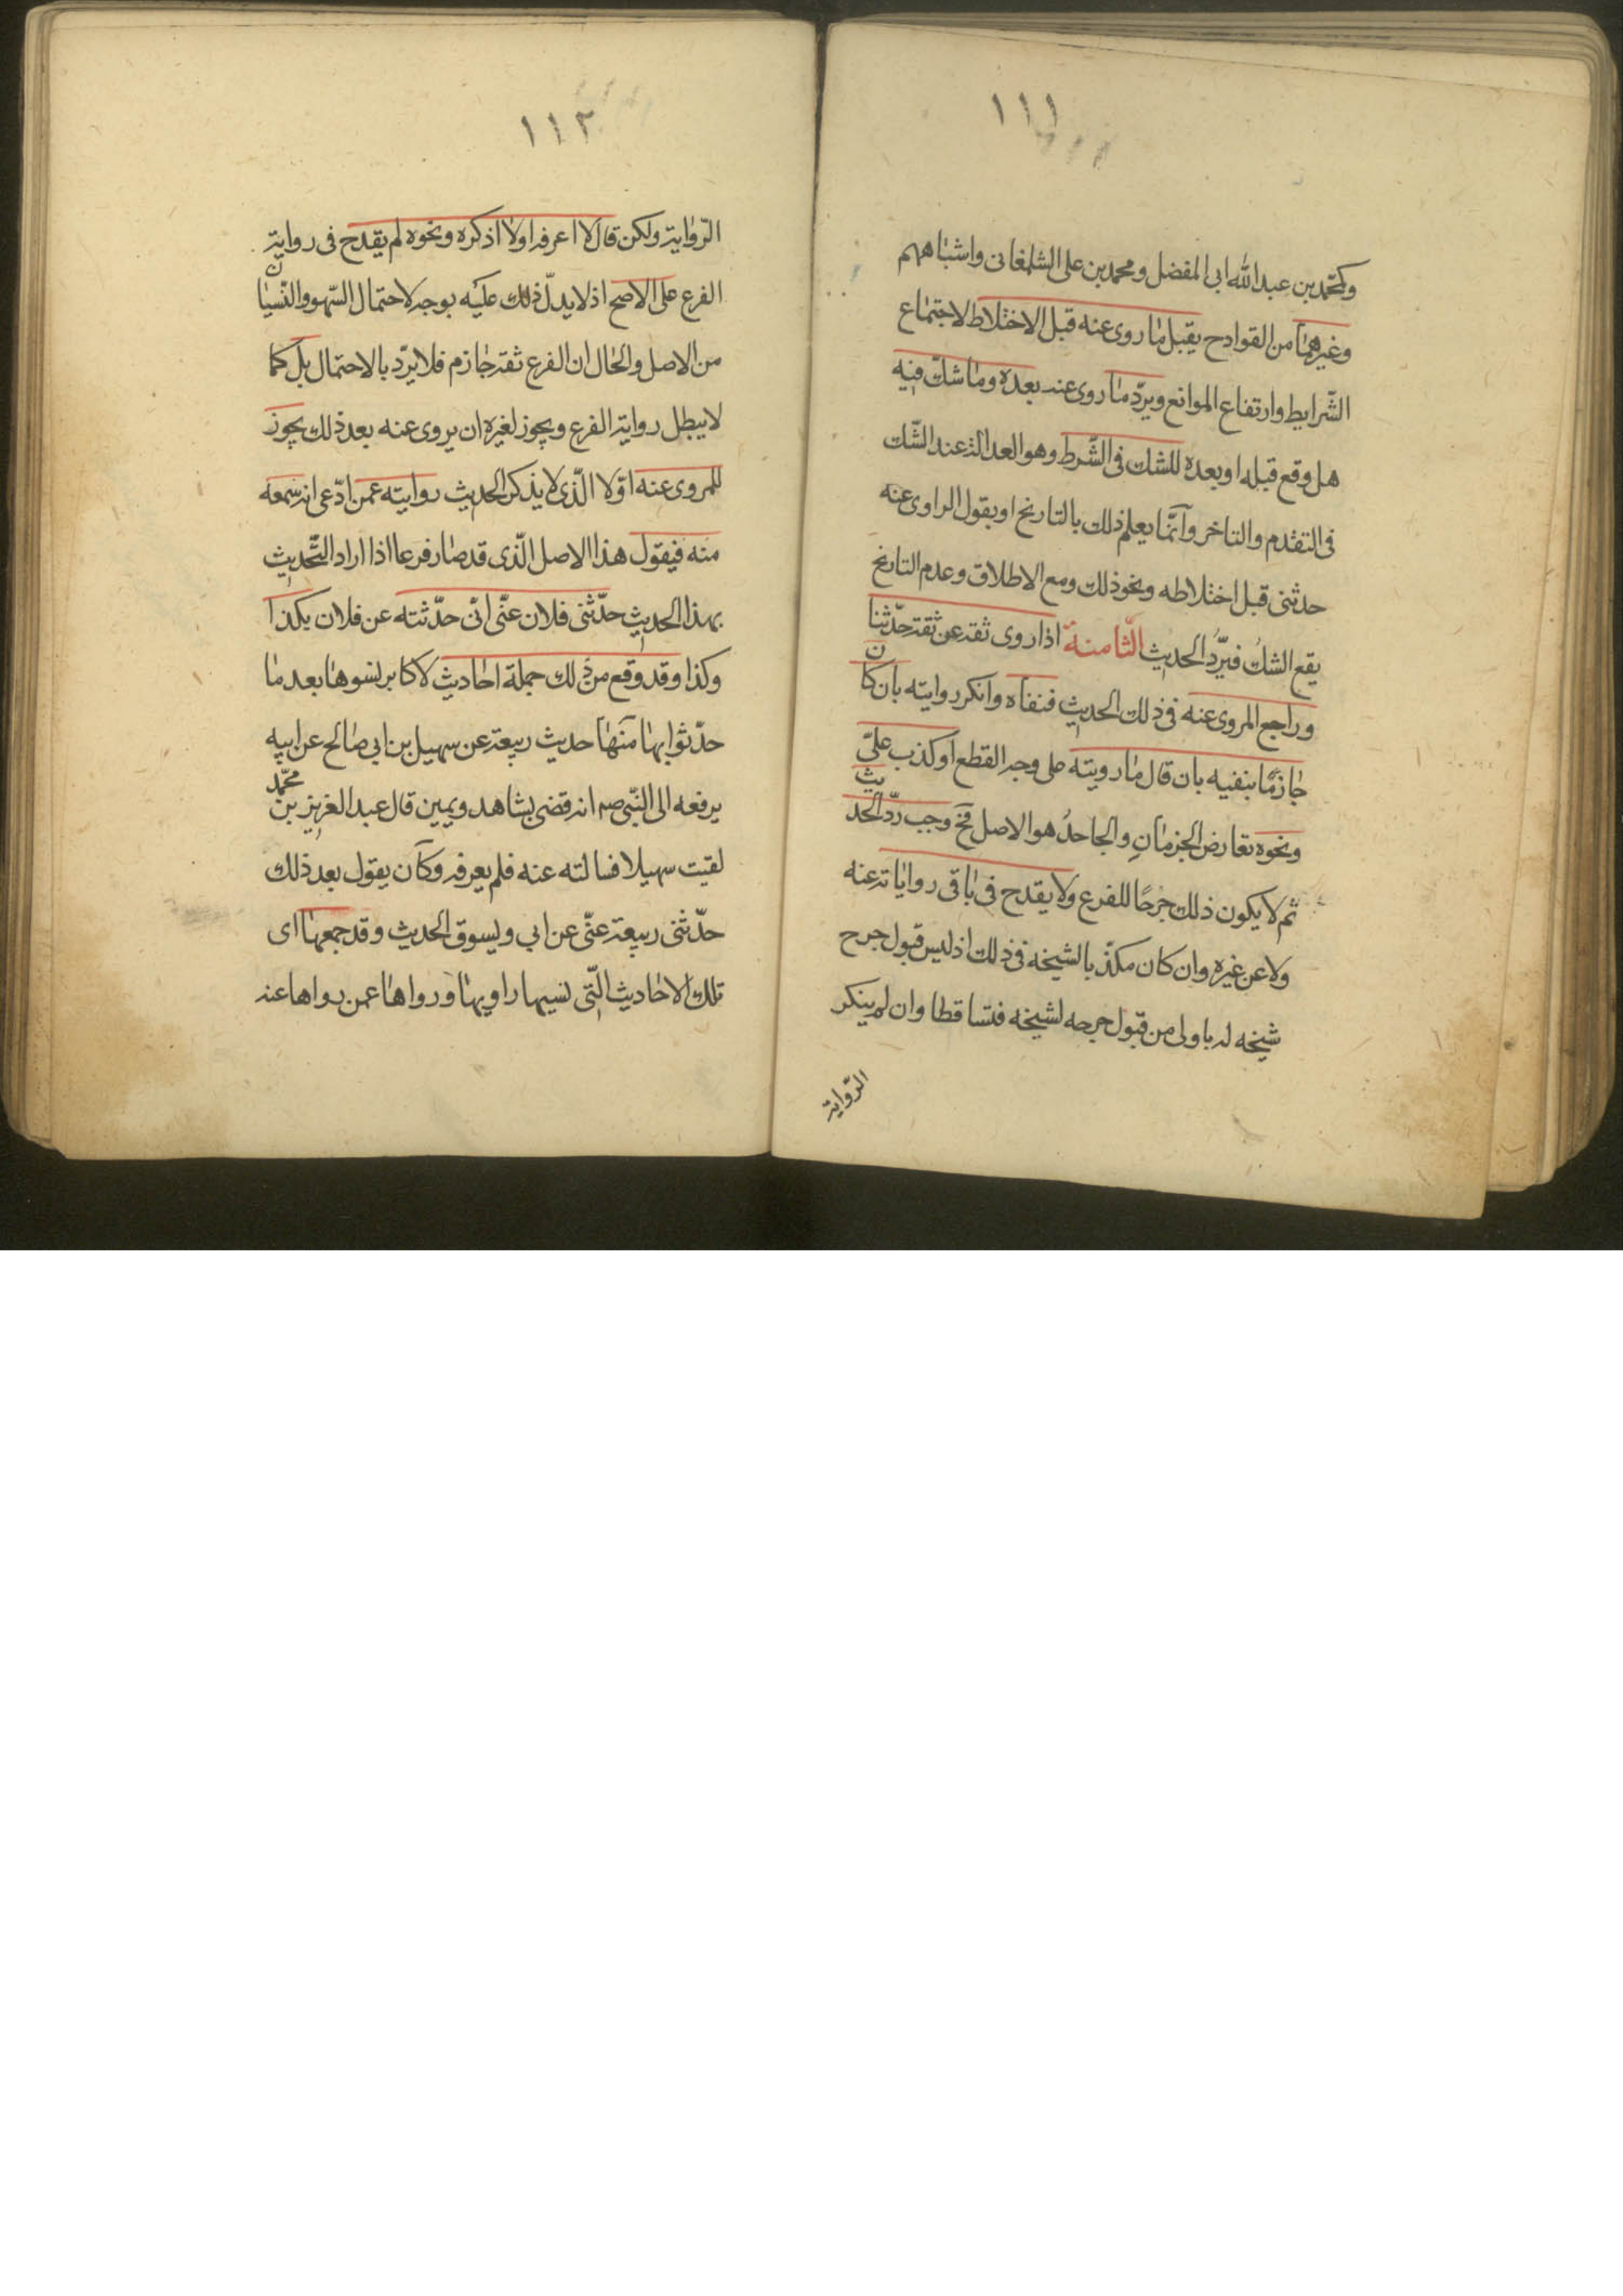 ١١١
وكمحمد بن عبد الله ابى المفضل ومحمد بن على الشلمغانى واشباههم
وغيرهما من القوادح يقبل ما روى عنه قبل الاختلاط لاجتماع
الشّرايط وارتفاع الموانع ويردّ ما روى عنه بعده وما شكّ فيه
هل وقع قبله او بعده للشك فى الشّرط وهو العدالة عند الشّك
فى التقدم والتاخر وانّما يعلم ذلك بالتاريخ او بقول الراوى عنه
حدثنى قبل اختلاطه ونحو ذلك ومع الاطلاق وعدم التاريخ
يقع الشكُ فيردُّ الحديث الثّامنة اذا روى ثقة عن ثقة حدّيثنا
وراجع المروى عنه فى ذلك الحديث فنفاه وانكر روايته بان كان
جازمًا بنفيه بان قال ما رويته على وجه القطع او كذب علىّ
ونحوه تعارض الجزمانِ والجاحدُ هو الاصل فح وجب ردّ الحديث
ثم لا يكون ذلك جرحًا للفرع ولا يقدح فى باقى رواياته عنه
ولا عن غيره وان كان مكذّبا لشيخه فى ذلك اذ ليس قبول جرح
شيخه له باولى من قبول جرحه لشيخه فتساقطا وان لم ينكر
الرّواية
١١٢
الرّواية ولكن قال لا اعرفه او لا اذكره ونحوه لم يقدح فى رواية
الفرع على الاصح اذ لا يدلّ ذلك عليه بوجه لاحتمال السّهو والنّسيان
من الاصل والحال ان الفرع ثقة جازم فلا يردّ بالاحتمال بل كما
لا يبطل رواية الفرع ويجوز لغيره ان يروى عنه بعد ذلك يجوز
للمروى عنه اوّلا الّذى لا يذكر الحديث روايته عمن ادّعى انه سمعه
منه فيقول هذا الاصل الّذى قد صار فرعا اذا اراد التّحديث
بهذا الحديث حدّثنى فلان عنّى انّى حدّثته عن فلان بكذا
وكذا وقد وقع من ذلك جملة احاديث لاكابر نسوها بعد ما
حدّثوا بها منها حديث ربيعة عن سهيل بن ابى صالح عن ابيه
يرفعه الى النّبى صم انه قضى بشاهد ويمين قال عبد العزيز بن محمّد
لقيت سهيلا فسالته عنه فلم يعرفه وكان يقول بعد ذلك
حدّثنى ربيعة عنّى عن ابى ويسوق الحديث وقد جمعها اى
تلك الاحاديث الّتى نسيها راويها ورواها عمن رواها عنه